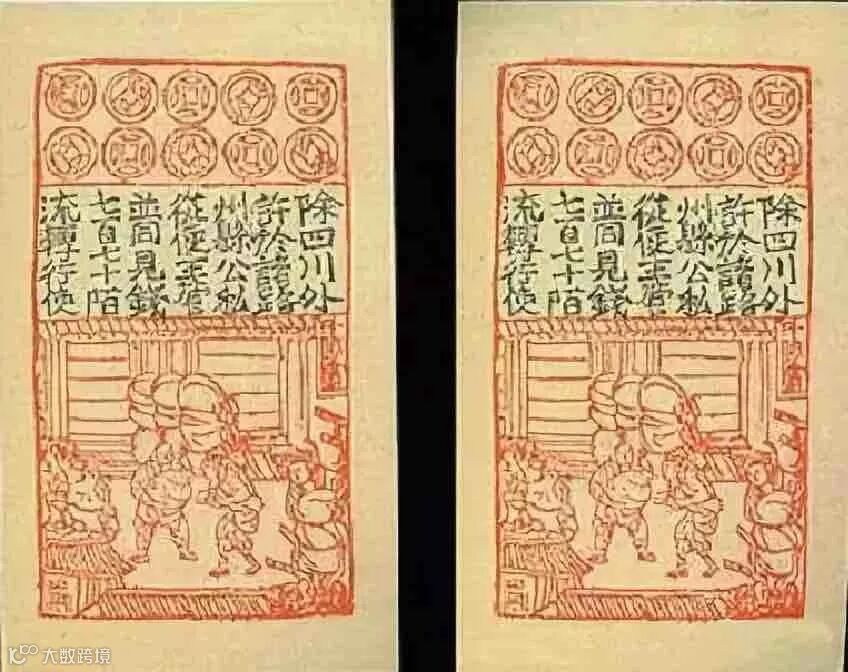 除四川外
許於諸路
州縣公私
從便主管
並同見錢
七百七十陌
流轉行使
除四川外
許於諸路
州縣公私
從便主管
並同見錢
七百七十陌
流轉行使
大数跨境